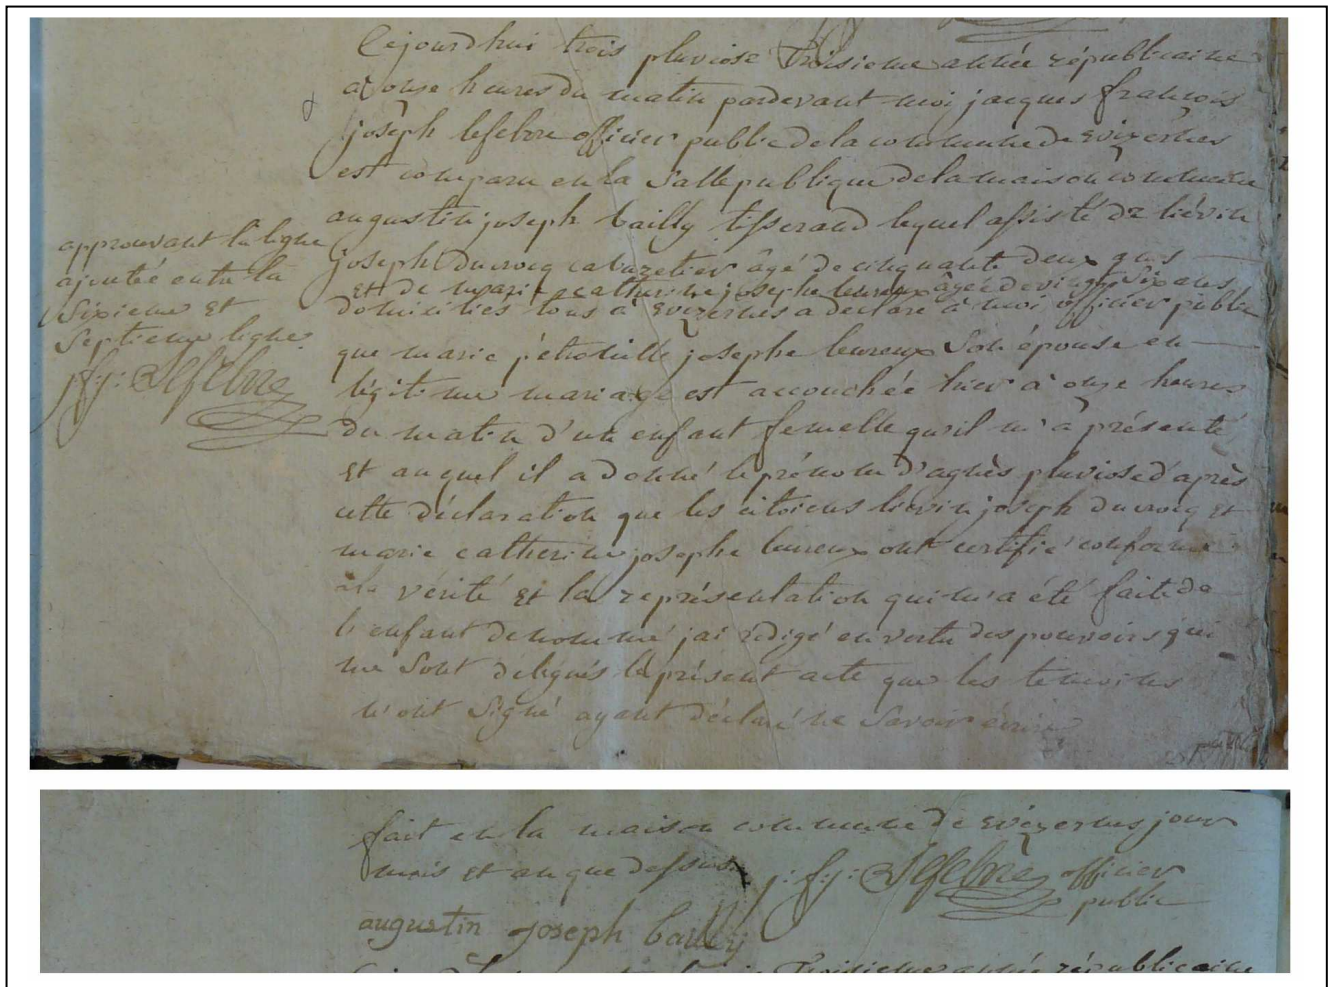 Cejourd'hui trois pluviose Troisieme année républicaine
à onse heures du matin pardevant moi jacques francois
joseph lefebre officier public de la commune de
est comparu en la Salle publique de la maison commune
augustin joseph bailly tisserand lequel assisté de liévin
joseph Ducrocq cabaretier âgé de cinquante deux ans
et de marie catherine josephe âgée de vingt Six ans
domiciliés tous à a déclaré à moi officier public
que marie pétronille josephe Son épouse en
légitime mariage est accouchée hier à onze heures
du matin d'un enfant femelle qu'il m'a présenté
et auquel il a donné le prénom d'agnès pluviose d'après
cette déclaration que les citoiens lievin joseph ducrocq et
marie catherine josephe ont certifié conforme
à la vérité et la représentation qui m'a été faite de
l'enfant dénommé j'ai rédigé en vertu des pouvoirs qui
me Sont délégués le présent acte que les temoins
n'ont Signé ayant déclaré ne Savoir écrire
approuvant la ligne
ajoutée entre la
Sixieme et
Septieme ligne
j: f: j: Lefebre
fait en la maison commune de jour
mois et an que dessus. j: f: j: Lefebre officier
public
augustin joseph bailly
Troisieme année républicaine